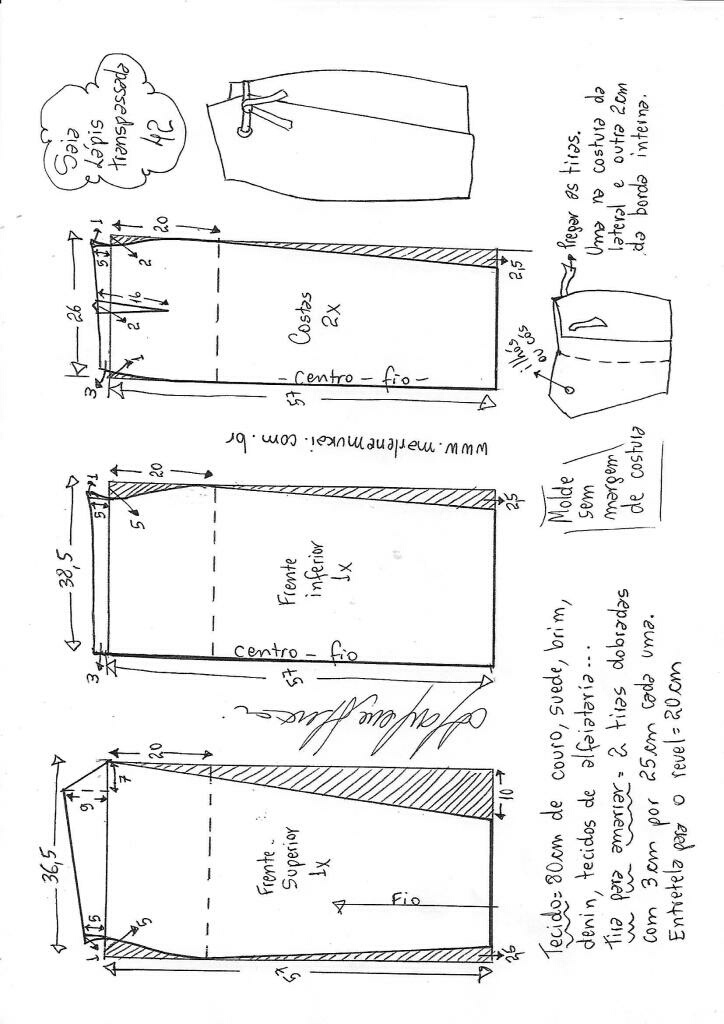 Saia
Lápis
transpassada
42
26
1
5
2
16
2
1
3
20
Costas
2x
- Centro - fio -
57
2,5
ilhós
ou cós
Pregar as tiras.
Uma na costura da
lateral e outra 2cm
da borda interna.
www.marlenemukai.com.br
38,5
1
5
5
3
20
Frente
inferior
1x
centro - fio
57
2,5
Molde
sem
margem
de costura
36,5
9
7
20
5
5
1
Frente -
Superior
1x
Fio
57
10
2,5
Tecido= 80cm de couro, suede, brim,
denin, tecidos de alfaiataria...
Tira para amarrar= 2 tiras dobradas
com 3cm por 25cm cada uma.
Entretela para o revel= 20cm